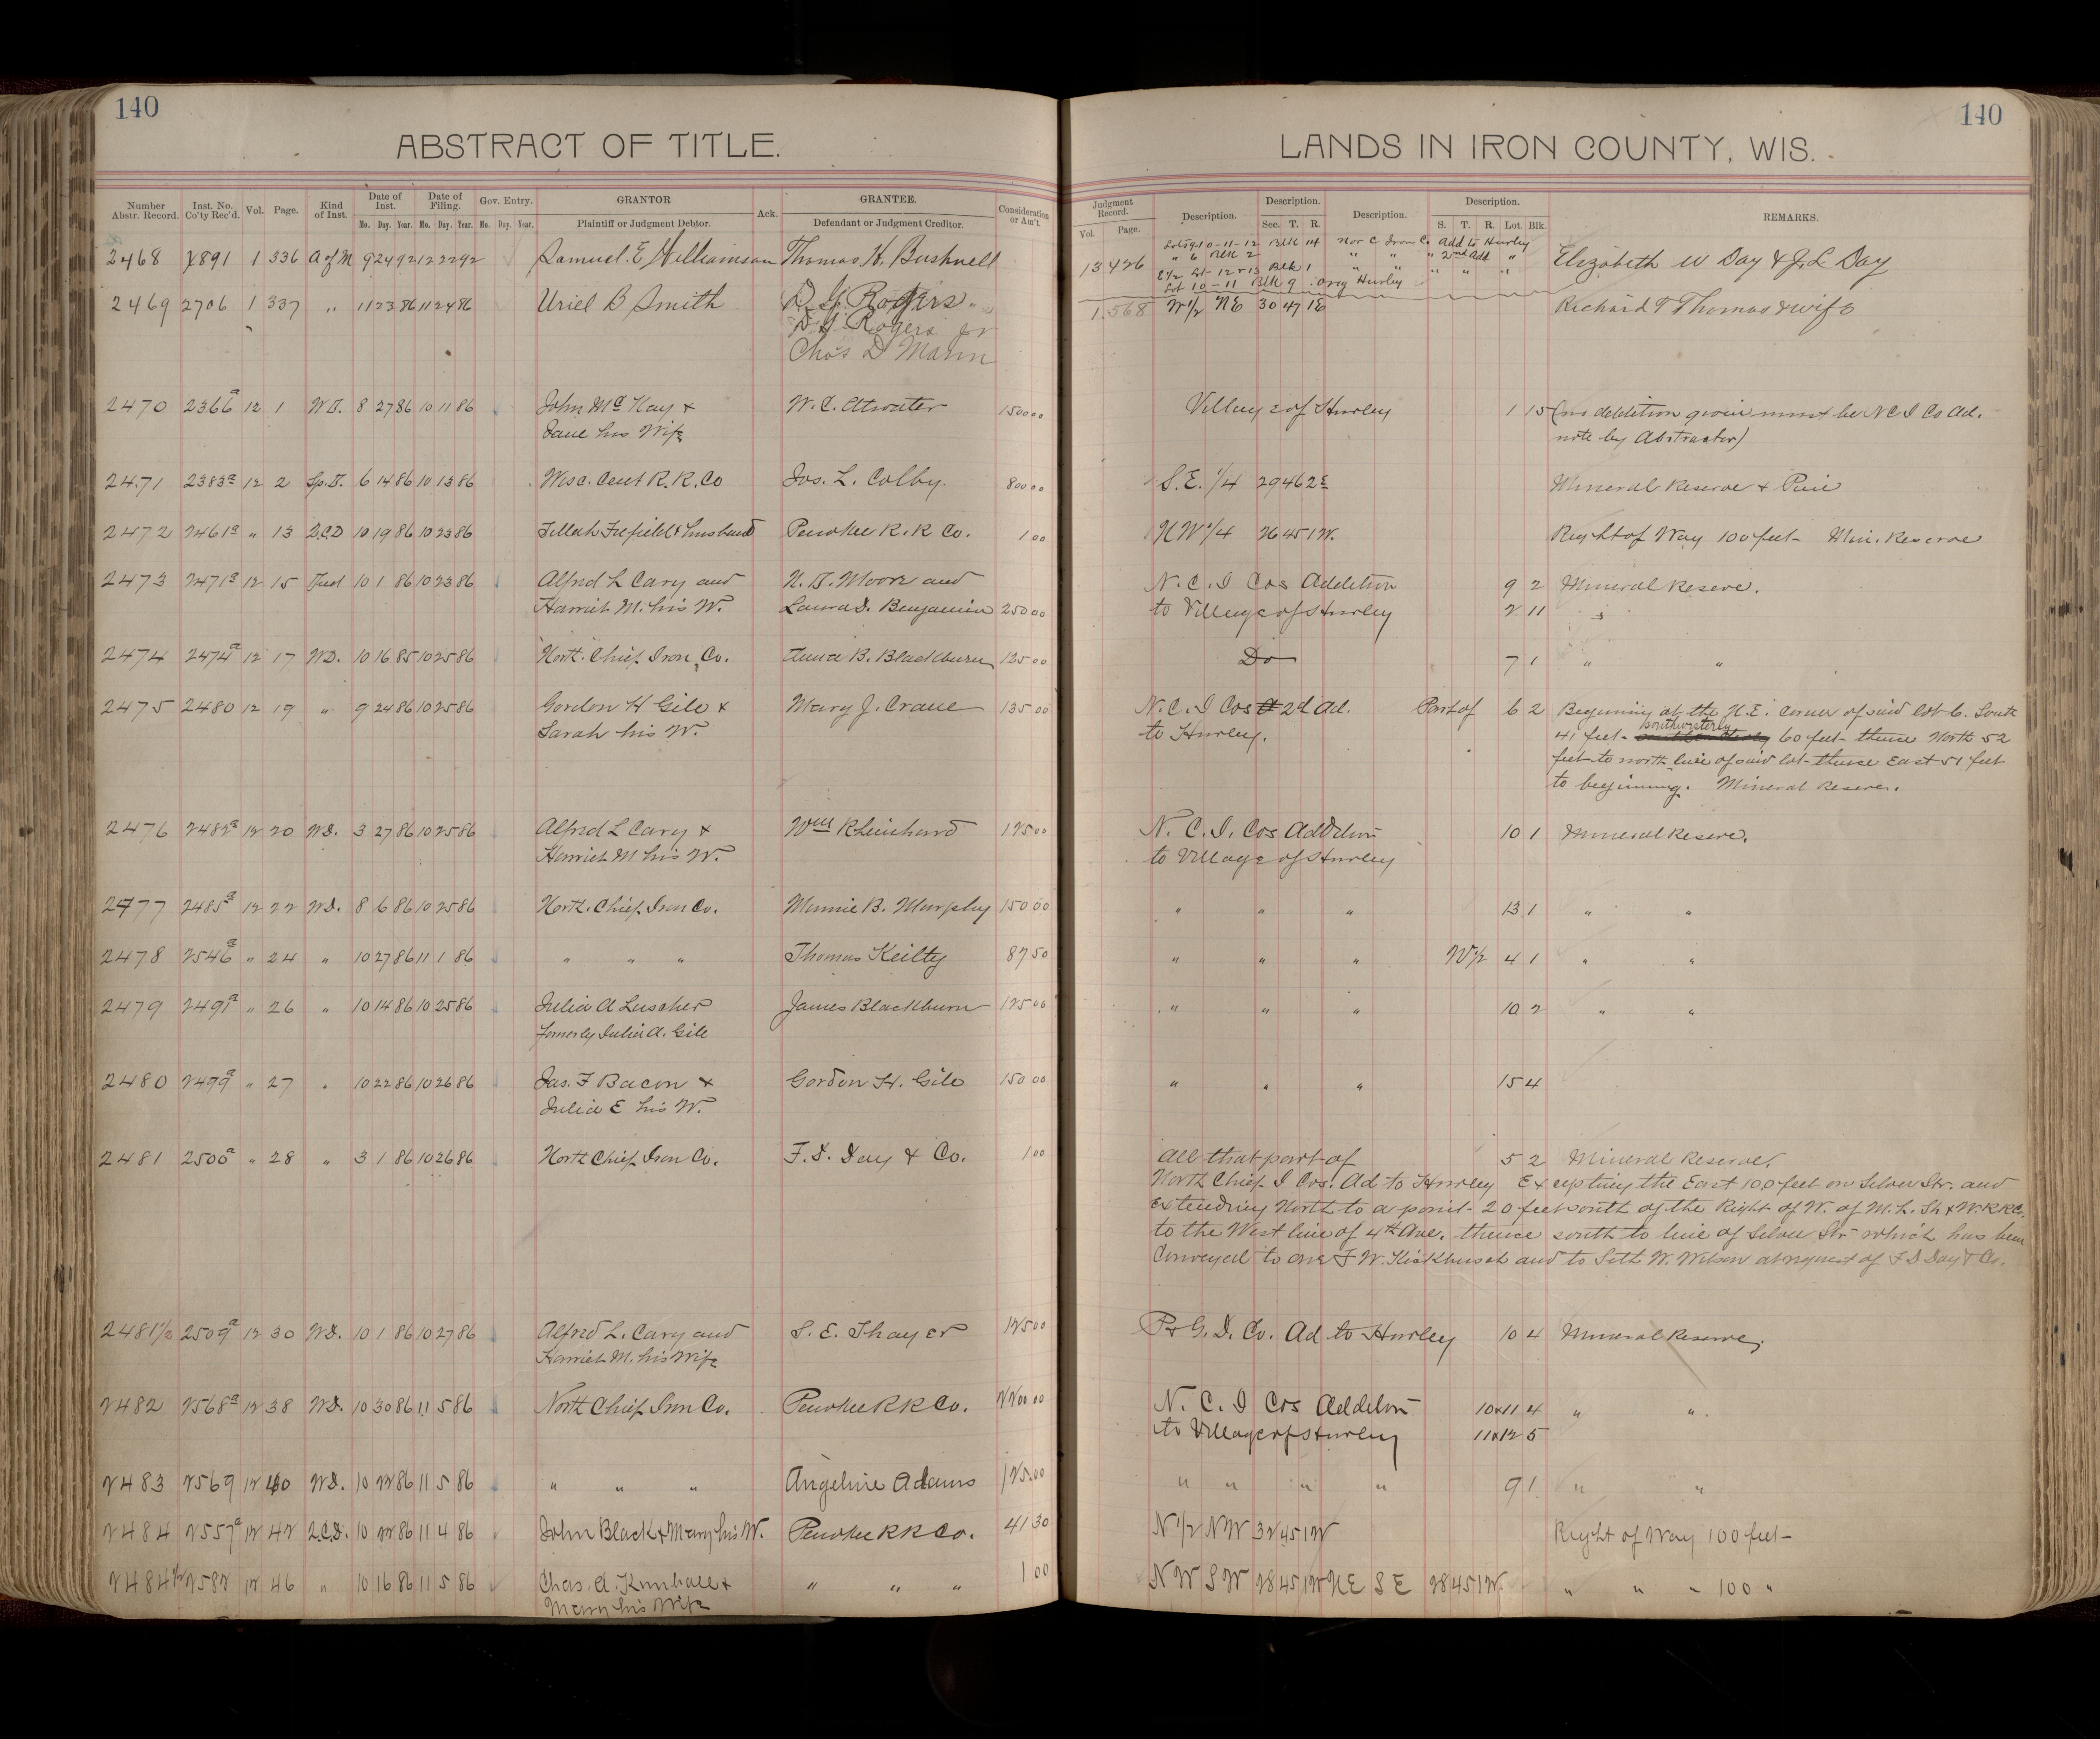 140
140
ABSTRACT OF TITLE.
LANDS IN IRON COUNTY, WIS.
Number Abstr. Record. Inst. No. Co'ty Rec'd. Vol. Page. Kind of Inst. Date of Inst. Mo. Day. Year. Date of Filing. Mo. Day. Year. Gov. Entry. Mo. Day. Year. GRANTOR Plaintiff or Judgment Debtor. Ack. GRANTEE. Defendant or Judgment Creditor. Consideration or Am't Judgment Record. Vol. Page. Description. Description. Sec. T. R. Description. Description. S. T. R. Lot. Blk. REMARKS.
2468 891 1 336 A of M 9 24 92 12 22 92 Samuel E Williamson Thomas H. Bushnell 13 426 10-11-12 Blk 14 Nor C Iron Co Add to Hurley Elizabeth W Day & J. L Day
" 6 Blk 2 " " " 2nd Add "
E1/2 Lot 12 & 13 Blk 1 " " " " "
Lot 10-11 Blk 9 . Orig Hurley
2469 2706 1 337 " 11 23 86 11 24 86 Uriel B Smith D. J. Rogers 1 568 W1/2 NE 30 47 1E Richard T Thomas & wife
D J Rogers Jr
Chas D Marin
2470 2366a 12 1 W D. 8 27 86 10 11 86 John McKay & W. C. Atwater 150 00 Village of Hurley 1 15 (no addition given must be N C I Co Ad.
Jane his Wife note by Abstractor)
2471 2383a 12 2 Sp. D. 6 14 86 10 13 86 Wisc. Cent R. R. Co Jos. L. Colby. 80 00 S. E. 1/4 29 46 2E Mineral Reserve & Pine
2472 2461a " 13 Q.C.D 10 19 86 10 23 86 Tillah Fifield & husband Penokee R. R Co. 1 00 NW 1/4 26 45 1W. Right of Way 100 feet- Min. Reserve
2473 2471a 12 15 Deed 10 1 86 10 23 86 Alfred L Cary and N. D. Moore and N. C. I Cos Addition 9 2 Mineral Reserve.
Harriet M. his W. Laura D. Benjamin 250 00 to Village of Hurley 2 11 "
2474 2474a 12 17 WD. 10 16 85 10 25 86 North. Chief Iron Co. Anna B. Blackburn 125 00 Do 7 1 " "
2475 2480 12 19 " 9 24 86 10 25 86 Gordon H Gile & Mary J. Crane 135 00 N. C. I Cos 2d Ad. Part of 6 2 Beginning at the N. E. Corner of said lot 6. South
Sarah his W. to Hurley. 41 feet- southwesterly 60 feet- thence North 52
feet to north line of said lot- thence East 51 feet
to beginning. Mineral Reserve.
2476 2482a 12 20 WD. 3 27 86 10 25 86 Alfred L Cary & Wm Rheinhard 125 00 N. C. I. Cos Addition 10 1 Mineral Reserve.
Harriet M his W. to Village of Hurley
2477 2485a 12 22 WD. 8 6 86 10 25 86 North. Chief Iron Co. Minnie B. Murphy 150 00 " " " 13 1 " "
2478 2546a " 24 " 10 27 86 11 1 86 " " " Thomas Keilty 87 50 " " " W1/2 4 1 " "
2479 2491a " 26 " 10 14 86 10 25 86 Julia A Luscher James Blackburn 125 00 " " " 10 2 " "
formerly Julia A. Gile
2480 2499a " 27 " 10 22 86 10 26 86 Jas. F Bacon & Gordon H. Gile 150 00 " " " 15 4
Julia E his W.
2481 2500a " 28 " 3 1 86 10 26 86 North Chief Iron Co. F. D. Day & Co. 1 00 All that part of 5 2 Mineral Reserve.
North Chief I Cos. Ad to Hurley Excepting the East 100 feet on Silver Str. and
Extending North to a point- 20 feet south of the Right of W. of M. L. Sh & W. R R Co.
to the West line of 4th Ave. thence south to line of Silver Str which has been
Conveyed to one F W. Kickbusch and to Seth W. Wilson at request of F D Day & Co.
2481 1/2 2509a 12 30 WD. 10 1 86 10 27 86 Alfred L. Cary and S. E. Thayer 125 00 P & G. I. Co. Ad to Hurley 10 4 Mineral Reserve.
Harriet M. his Wife
2482 2568a 12 38 WD. 10 30 86 11 5 86 North Chief Iron Co. Penokee R R Co. 2200 00 N. C. I Cos Addition 10 & 11 4 " "
to Village of Hurley 11 & 12 5
2483 2569 12 40 WD. 10 22 86 11 5 86 " " " Angeline Adams 125.00 " " " " 9 1 " "
2484 2557a 12 42 Q.C.D. 10 22 86 11 4 86 John Black & Mary his W. Penokee R R Co. 41 30 N 1/2 NW 32 45 1W Right of Way 100 feet-
2484 1/2 2582 12 46 " 10 16 86 11 5 86 Chas. A. Kimball & " " " 1 00 NW SW 28 45 1W NE SE 28 45 1W. " " - 100 "
Mary his Wife